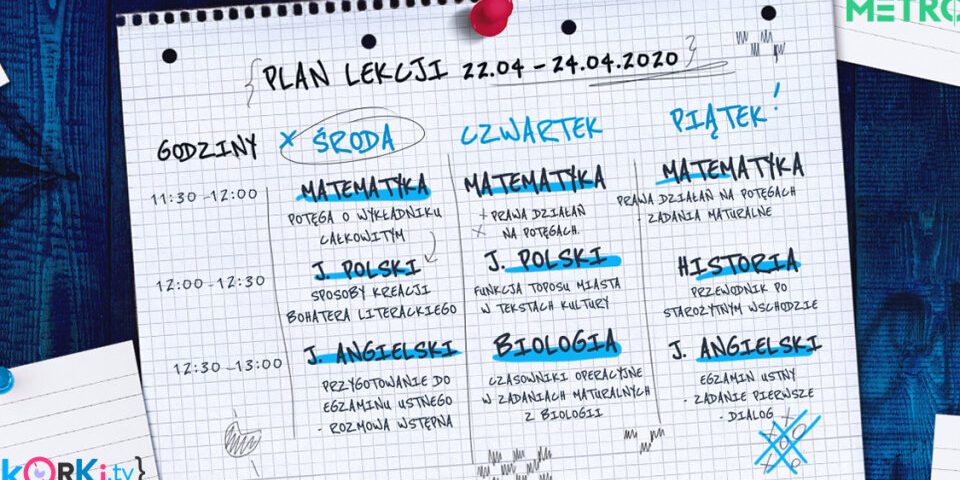 METRO
{PLAN LEKCJI 22.04 - 24.04.2020}
GODZINY
x ŚRODA
CZWARTEK
PIĄTEK!
11:30 - 12:00
MATEMATYKA
POTĘGA O WYKŁADNIKU
CAŁKOWITYM
MATEMATYKA
PRAWA DZIAŁAŃ
NA POTĘGACH.
MATEMATYKA
PRAWA DZIAŁAŃ NA POTĘGACH
- ZADANIA MATURALNE
12:00 - 12:30
J. POLSKI
SPOSOBY KREACJI
BOHATERA LITERACKIEGO
J. POLSKI
FUNKCJA TOPOSU MIASTA
W TEKSTACH KULTURY
HISTORIA
PRZEWODNIK PO
STAROŻYTNYM WSCHODZIE
12:30 - 13:00
J. ANGIELSKI
PRZYGOTOWANIE DO
EGZAMINU USTNEGO
- ROZMOWA WSTĘPNA
BIOLOGIA
CZASOWNIKI OPERACYJNE
W ZADANIACH MATURALNYCH
Z BIOLOGII
J. ANGIELSKI
EGZAMIN USTNY
- ZADANIE PIERWSZE
- DIALOG
kORKi.tv}